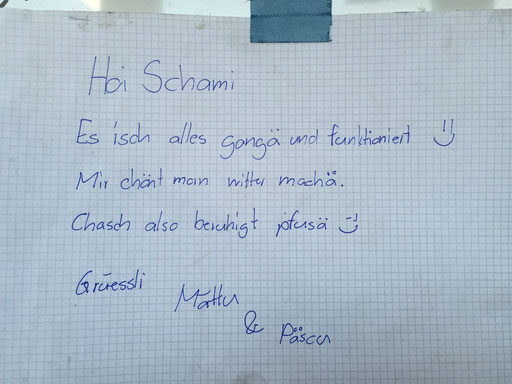 Hoi Schami
Es isch alles gangä und funktioniert :)
Mir chönt morn witter machä.
Chasch also beruhigt pfusä :)
Grüessli
Matter
& Päscu